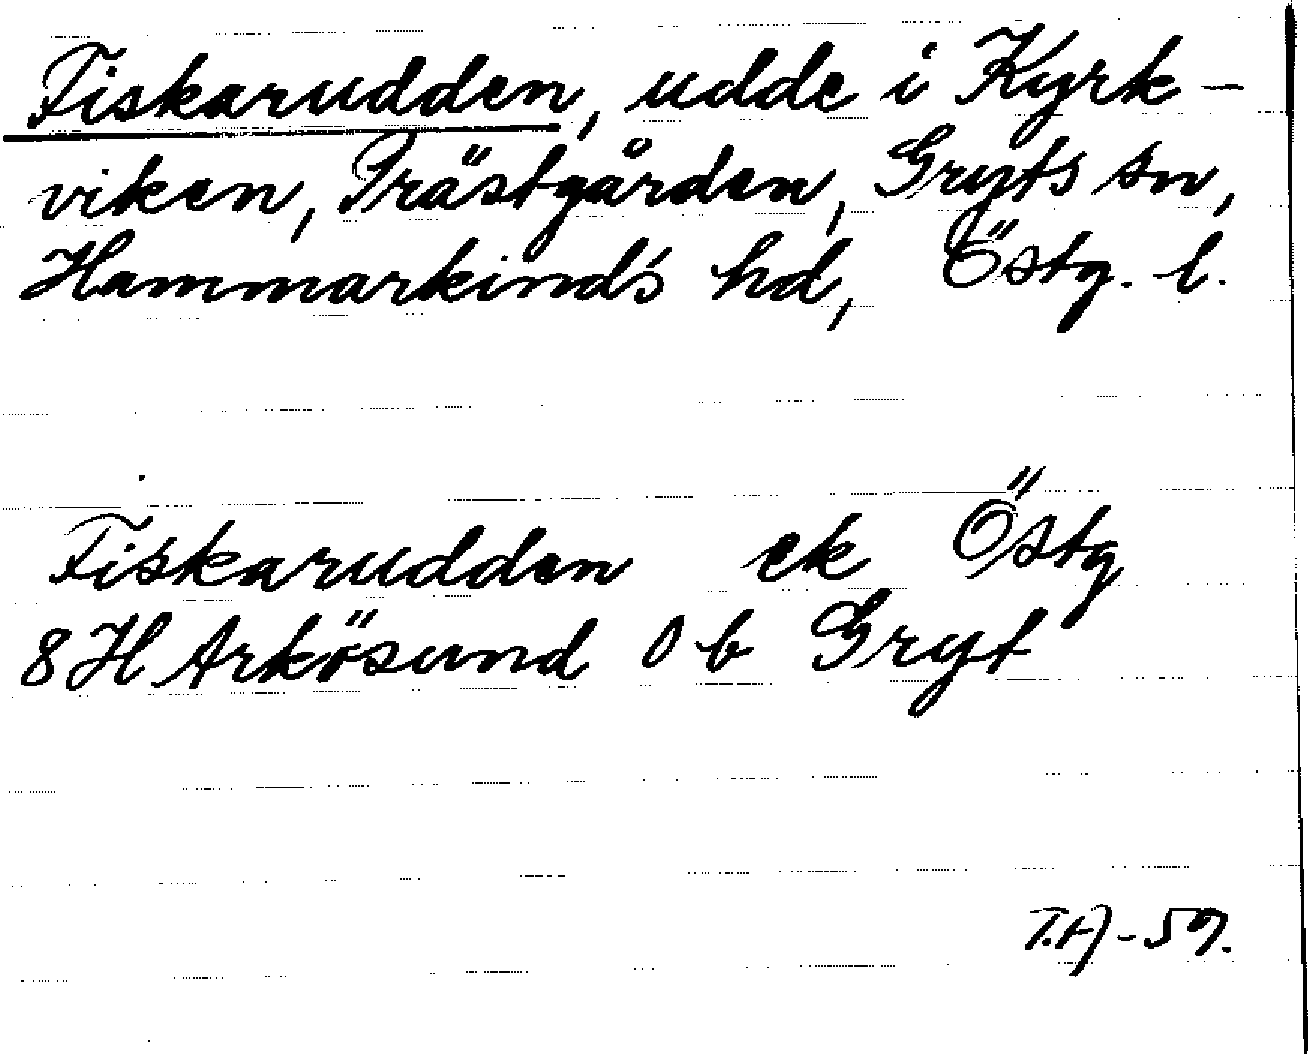 Fiskarudden, udde i Kyrk-
viken, Prästgården, Gryts sn,
Hammarkinds hd, Östg. l.
Fiskarudden ek Östg
8H Arkösund 0 b Gryt
T.A-59.